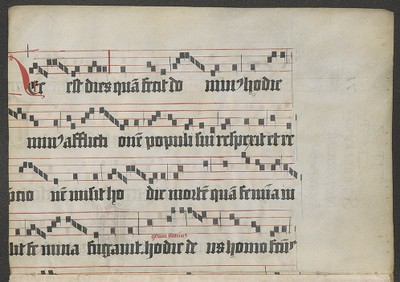 Hec est dies quā fecit do minꝰ hodie
minꝰ afflicti onē populi sui respexit et re
nē misit ho die mortē quā femina in
lit fe mina fugauit. hodie de us homo